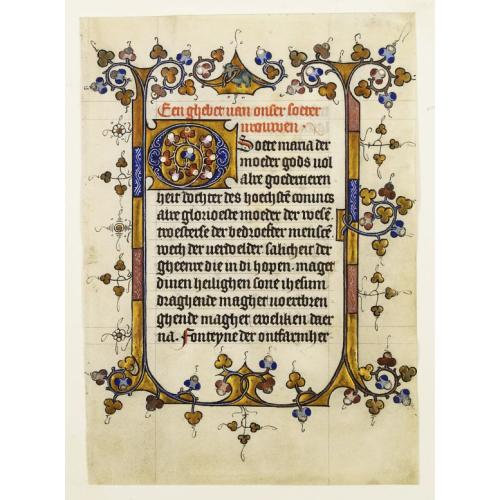 Een ghebet van onser soeter
vrouwen.
O Soete maria der
moeder gods vol
alre goedertieren
heit dochter des hoechstē conincs
alre glorioeste moeder der wesē
troesterse der bedroefter menschē
wech der verdoelder salicheit der
gheenre die in di hopen. maget
dinen heilighen sone ihesum
draghende magher voertbren
ghende magher eweliken daer
na. Fonteyne der ontfarmher